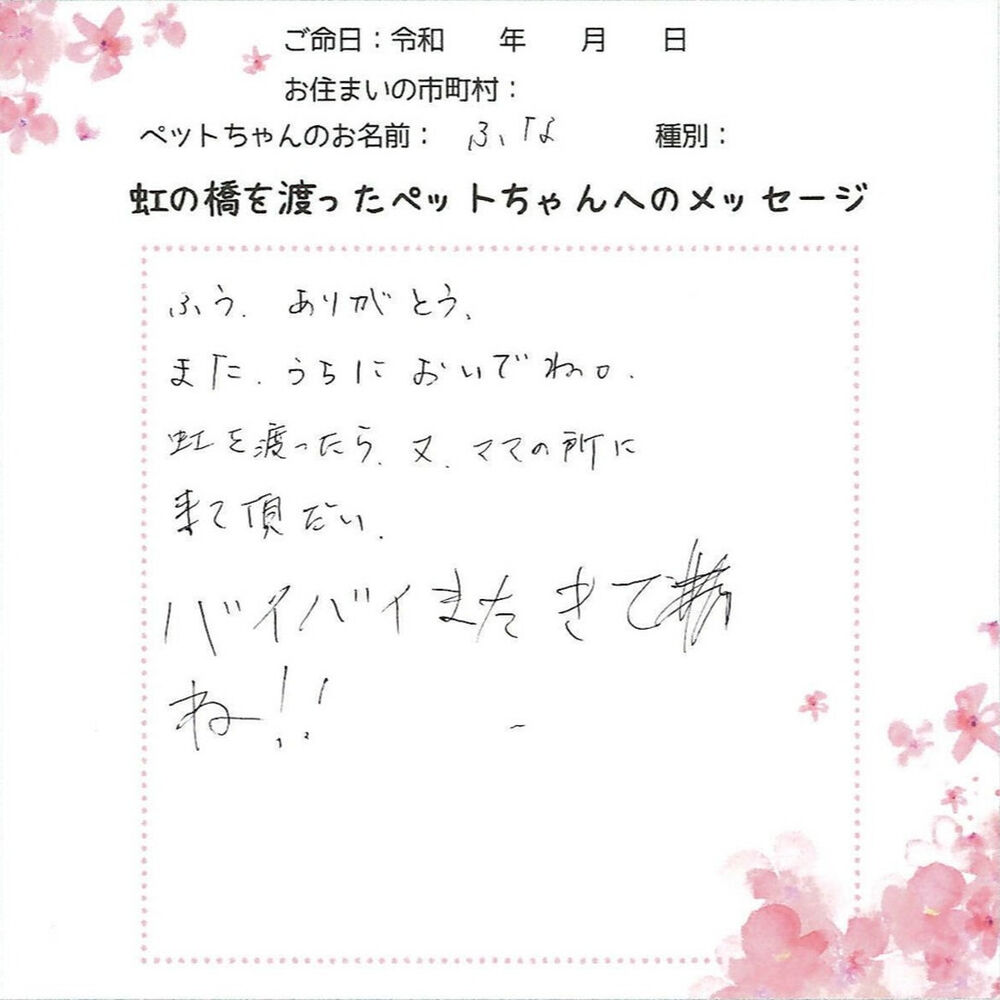 ご命日：令和　年　月　日
お住まいの市町村：
ペットちゃんのお名前：ふな　種別：
虹の橋を渡ったペットちゃんへのメッセージ
ふう、ありがとう、
また、うちにおいでね。
虹を渡ったら、又、ママの所に
来て頂だい、
バイバイまたきて
ね!!